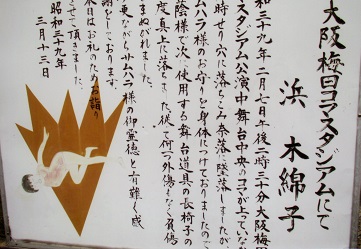 大阪梅田コマスタジアムにて
浜 木綿子
昭和三十九年二月七日午後二時三十分大阪梅
スタジアム公演中舞台中央のコマが上っていな
時せり穴に落ちこみ奈落に墜落しましたが
サムハラ様のお守りを身体につけておりましたので
陰様で次に使用する舞台道具の長椅子の
度真上に落ちまして何一つ外傷もなく負傷
まぬがれました。
来ながらサムハラ様の御霊徳と有難く感
謝をしております。
本日はお礼のためお詣り
させて頂きました。
昭和三九年
三月十三日